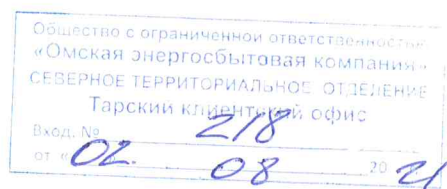 Общество с ограниченной ответственностью
«Омская энергосбытовая компания»
СЕВЕРНОЕ ТЕРРИТОРИАЛЬНОЕ ОТДЕЛЕНИЕ
Тарский клиентский офис
Вход. № 218
от « 02 08 20 21